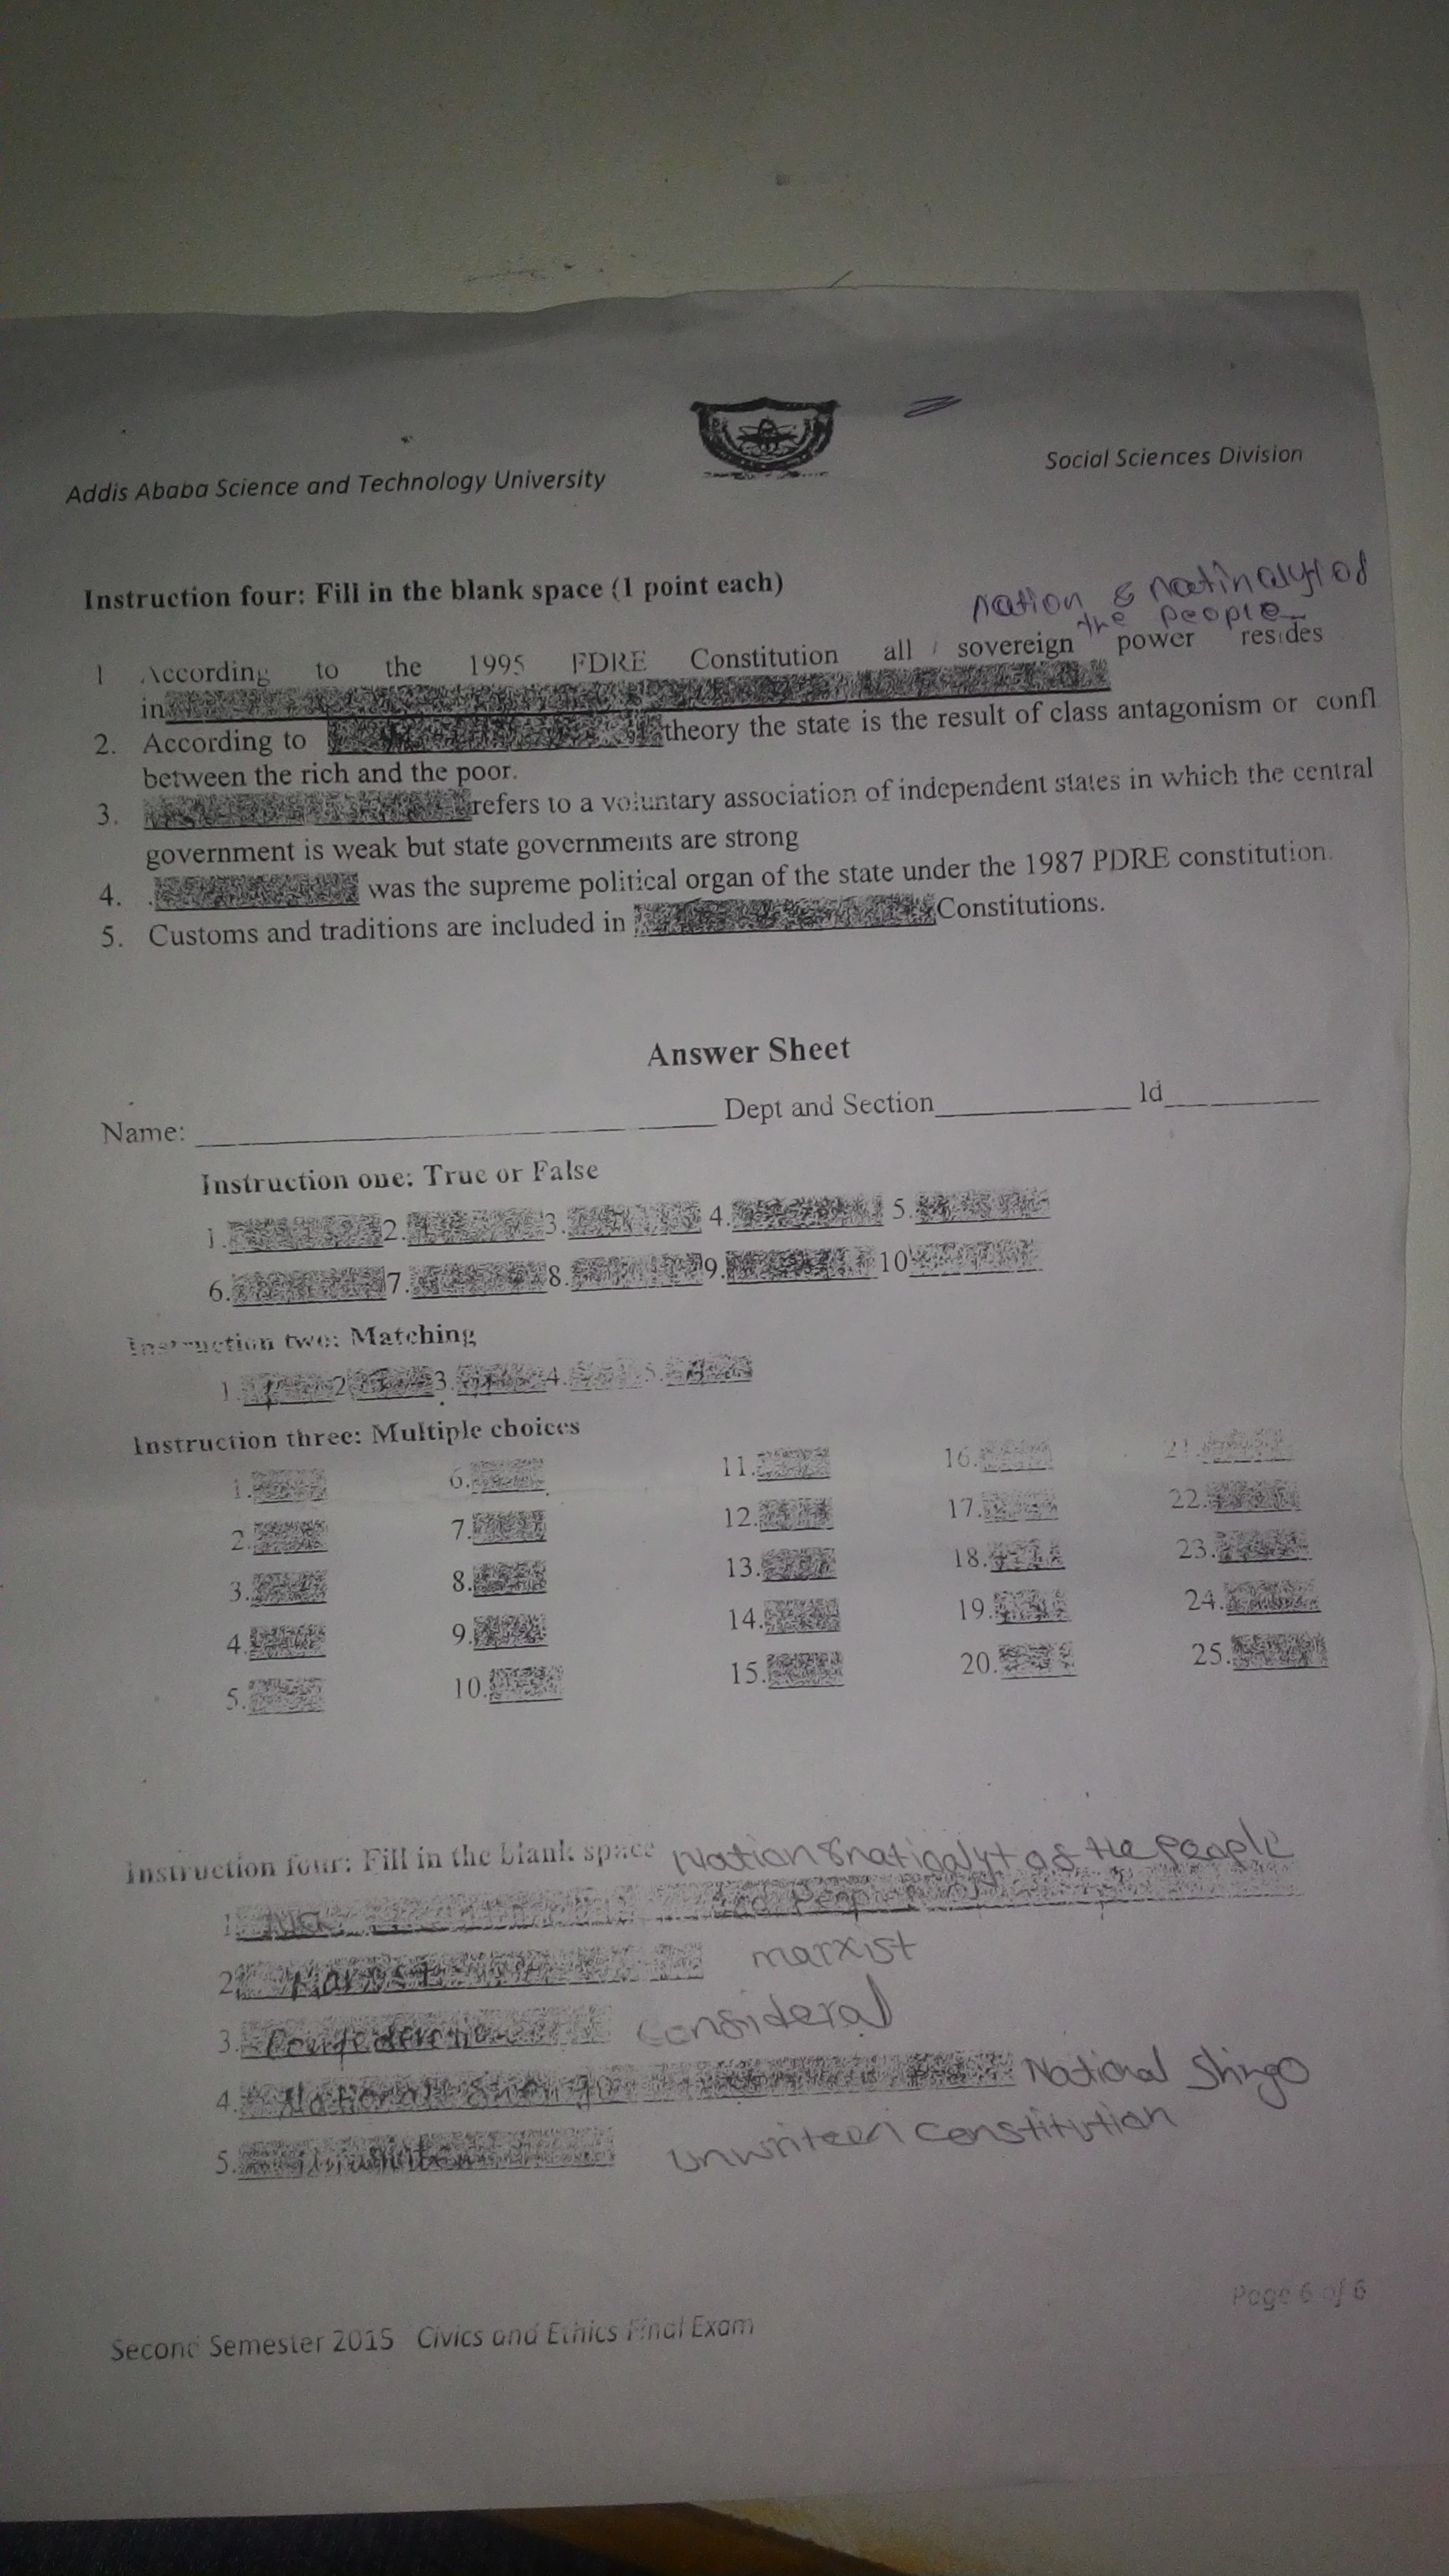 Addis Ababa Science and Technology University
Social Sciences Division
Instruction four: Fill in the blank space (1 point each)
nation & natinalyt of
the people
1 According to the 1995 FDRE Constitution all sovereign power resides
in
2. According to theory the state is the result of class antagonism or confl
between the rich and the poor.
3. refers to a voluntary association of independent states in which the central
government is weak but state governments are strong
4. was the supreme political organ of the state under the 1987 PDRE constitution.
5. Customs and traditions are included in Constitutions.
Answer Sheet
Name: Dept and Section Id
Instruction one: True or False
1. 2. 3. 4. 5.
6. 7. 8. 9. 10
Instruction two: Matching
1. 2. 3. 4. 5.
Instruction three: Multiple choices
1. 6. 11. 16. 21.
2. 7. 12. 17. 22.
3. 8. 13. 18. 23.
4. 9. 14. 19. 24.
5. 10. 15. 20. 25.
Instruction four: Fill in the blank space Nation & natioalyt of the people
1.
2. Marxist marxist
3. consideral
4. National Shengo National Shingo
5. unwriteen constitution
Second Semester 2015 Civics and Ethics Final Exam
Page 6 of 6